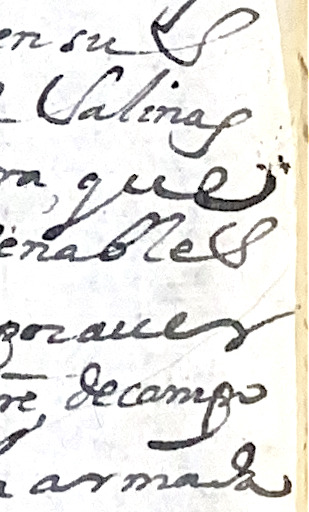 en su S
Salinas
ra, que
enables
por auer
re, de campo
armada